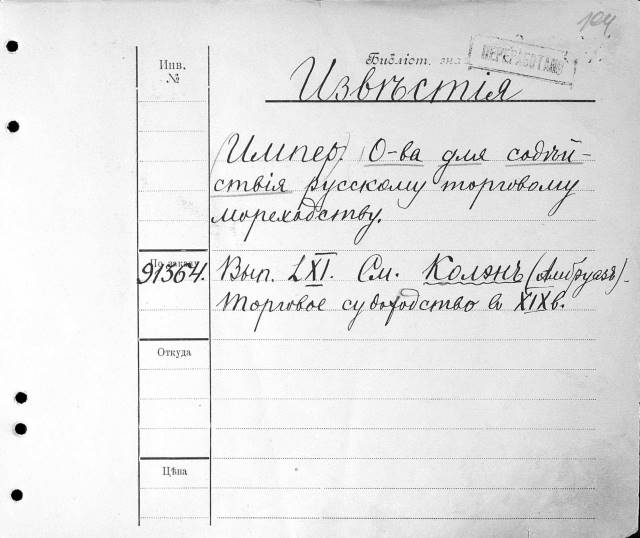 104
Инв.
№
Библіот. зна
ПЕРЕРАБОТАНО
Извѣстія
(Импер.) О-ва для содѣй-
ствія русскому торговому
мореходству.
По заказу
91364. Вып. LXI. См. Колэнъ (Амбруазъ) -
Торговое судоходство в XIXв.
Откуда
Цѣна